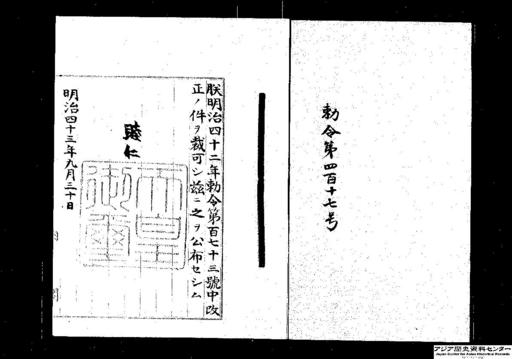 勅令第四百十七号
朕明治四十二年勅令第百七十三號中改
正ノ件ヲ裁可シ茲ニ之ヲ公布セシム
睦仁
天皇
御璽
明治四十三年九月三十日
アジア歴史資料センター
Japan Center for Asian Historical Records